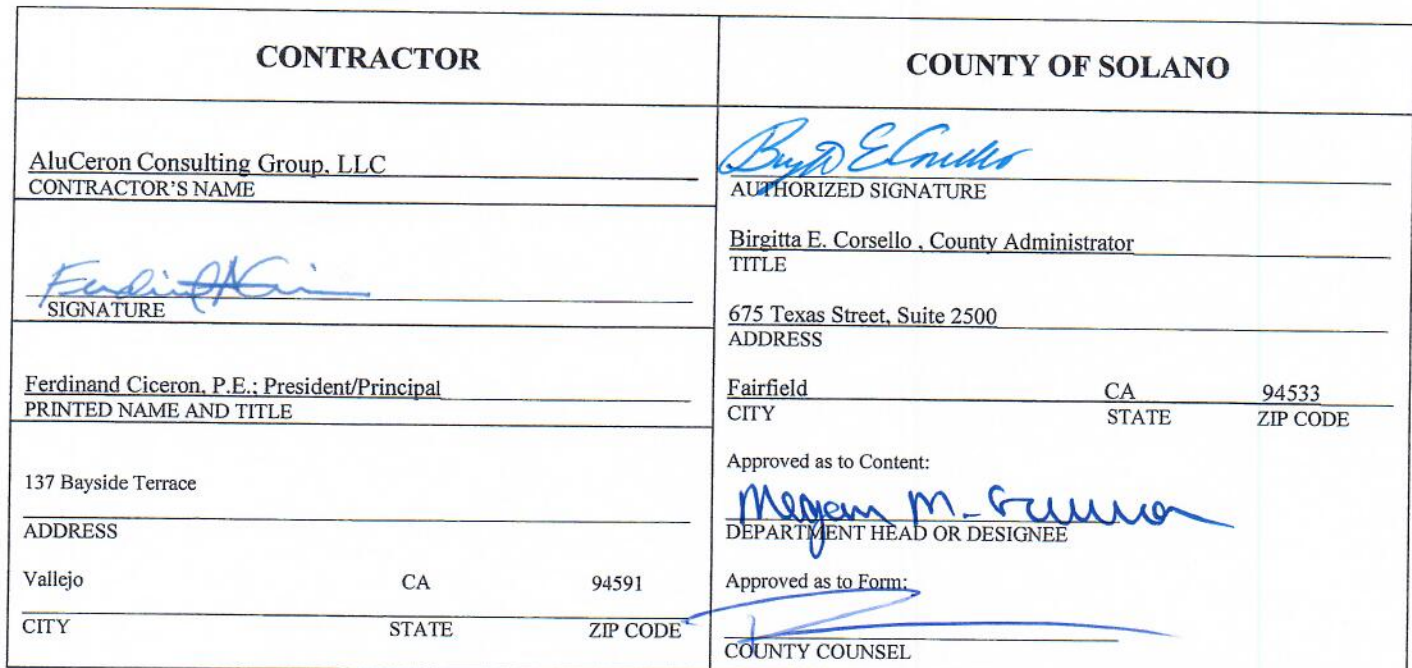 CONTRACTOR
AluCeron Consulting Group, LLC
CONTRACTOR'S NAME
SIGNATURE
Ferdinand Ciceron, P.E.; President/Principal
PRINTED NAME AND TITLE
137 Bayside Terrace
ADDRESS
Vallejo CA 94591
CITY STATE ZIP CODE
COUNTY OF SOLANO
AUTHORIZED SIGNATURE
Birgitta E. Corsello , County Administrator
TITLE
675 Texas Street, Suite 2500
ADDRESS
Fairfield CA 94533
CITY STATE ZIP CODE
Approved as to Content:
Megan M.
DEPARTMENT HEAD OR DESIGNEE
Approved as to Form:
COUNTY COUNSEL